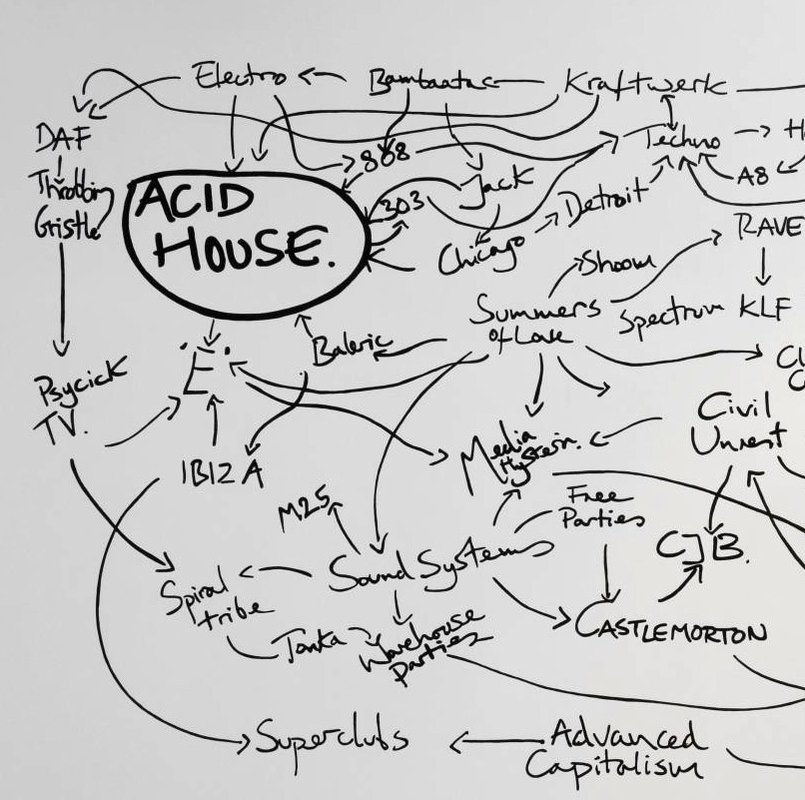 Electro
Bambaataa
Kraftwerk
DAF
808
Techno
H
Throbbing
Gristle
ACID
HOUSE.
303
Jack
Detroit
A8
Chicago
Shoom
RAVE
Summers
of Love
Spectrum
KLF
"E"
Baleric
Psycick
TV.
IBIZA
Media
Hysteria.
Civil
Unrest
M25
Free
Parties
CJB.
Spiral
tribe
Sound Systems
CASTLEMORTON
Tonka
Warehouse
Parties
Superclubs
Advanced
Capitalism